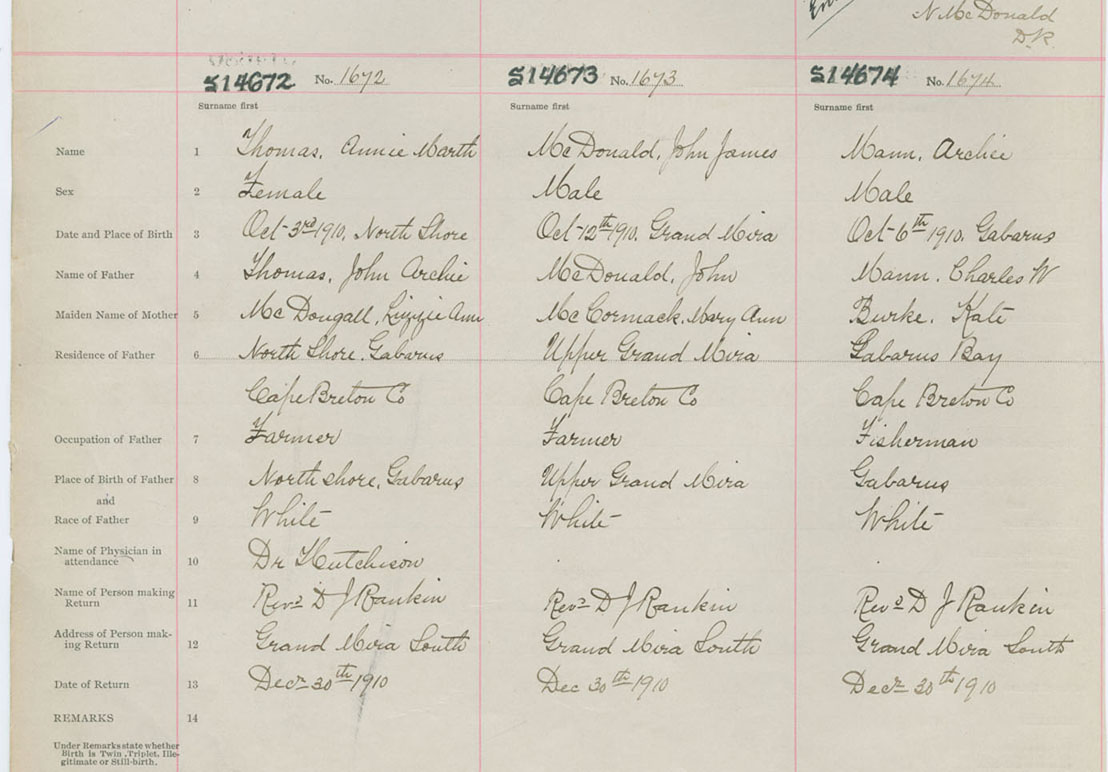 N. McDonald
D.R.
S14672 No. 1672 S14673 No. 1673 S14674 No. 1674
Surname first Surname first Surname first
Name 1 Thomas, Annie Marth McDonald, John James Mann, Archie
Sex 2 Female Male Male
Date and Place of Birth 3 Oct 3rd 1910, North Shore Oct 12th 1910, Grand Mira Oct 6th 1910, Gabarus
Name of Father 4 Thomas, John Archie McDonald, John Mann, Charles W
Maiden Name of Mother 5 McDougall, Lizzie Ann McCormack, Mary Ann Burke, Kate
Residence of Father 6 North Shore, Gabarus Upper Grand Mira Gabarus Bay
Cape Breton Co Cape Breton Co Cape Breton Co
Occupation of Father 7 Farmer Farmer Fisherman
Place of Birth of Father 8 North shore, Gabarus Upper Grand Mira Gabarus
and
Race of Father 9 White White White
Name of Physician in
attendance 10 Dr Hutchison
Name of Person making
Return 11 Revd D J Rankin Revd D J Rankin Revd D J Rankin
Address of Person mak-
ing Return 12 Grand Mira South Grand Mira South Grand Mira South
Date of Return 13 Decr 30th 1910 Dec 30th 1910 Decr 30th 1910
REMARKS 14
Under Remarks state whether
Birth is Twin, Triplet, Ille-
gitimate or Still-birth.